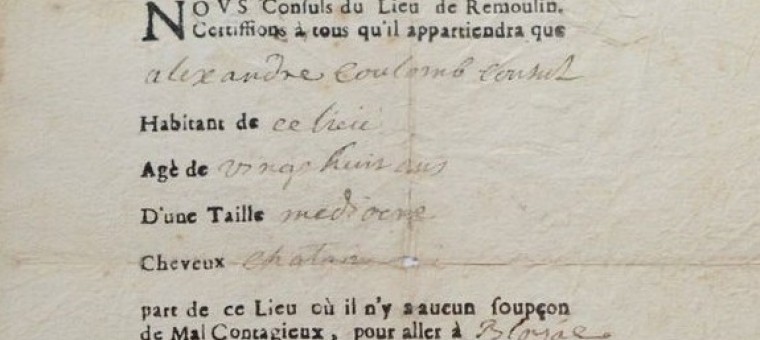 NOVS Consuls du Lieu de Remoulin.
Certiffions à tous qu'il appartiendra que
alexandre Coulomb Consul
Habitant de ce lieu
Agè de vingt huit ans
D'une Taille mediocre
Cheveux chatain
part de ce Lieu où il n'y a aucun soupçon
de Mal Contagieux, pour aller à